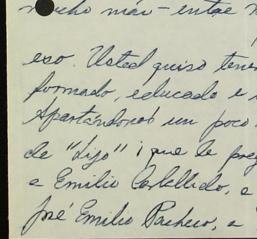 mucho más - entre
eso. Usted quiso tener
formado, educado e
Apartándonos un poco
de "Lijo" ¡ que le preg
a Emilio Carballido, a
José Emilio Pacheco, a